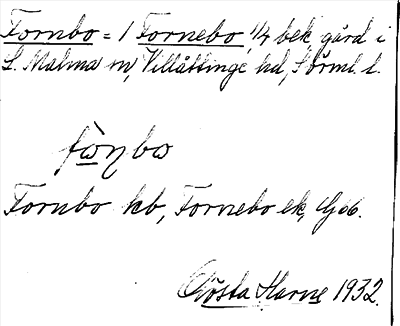 Fornbo = 1 Fornebo, 1/4 bek, gård i
L. Malma sn, Villåttinge hd, Sörml. l.
fὼηbω
Fornbo kb, Fornebo ek,
Gösta Harne 1932.